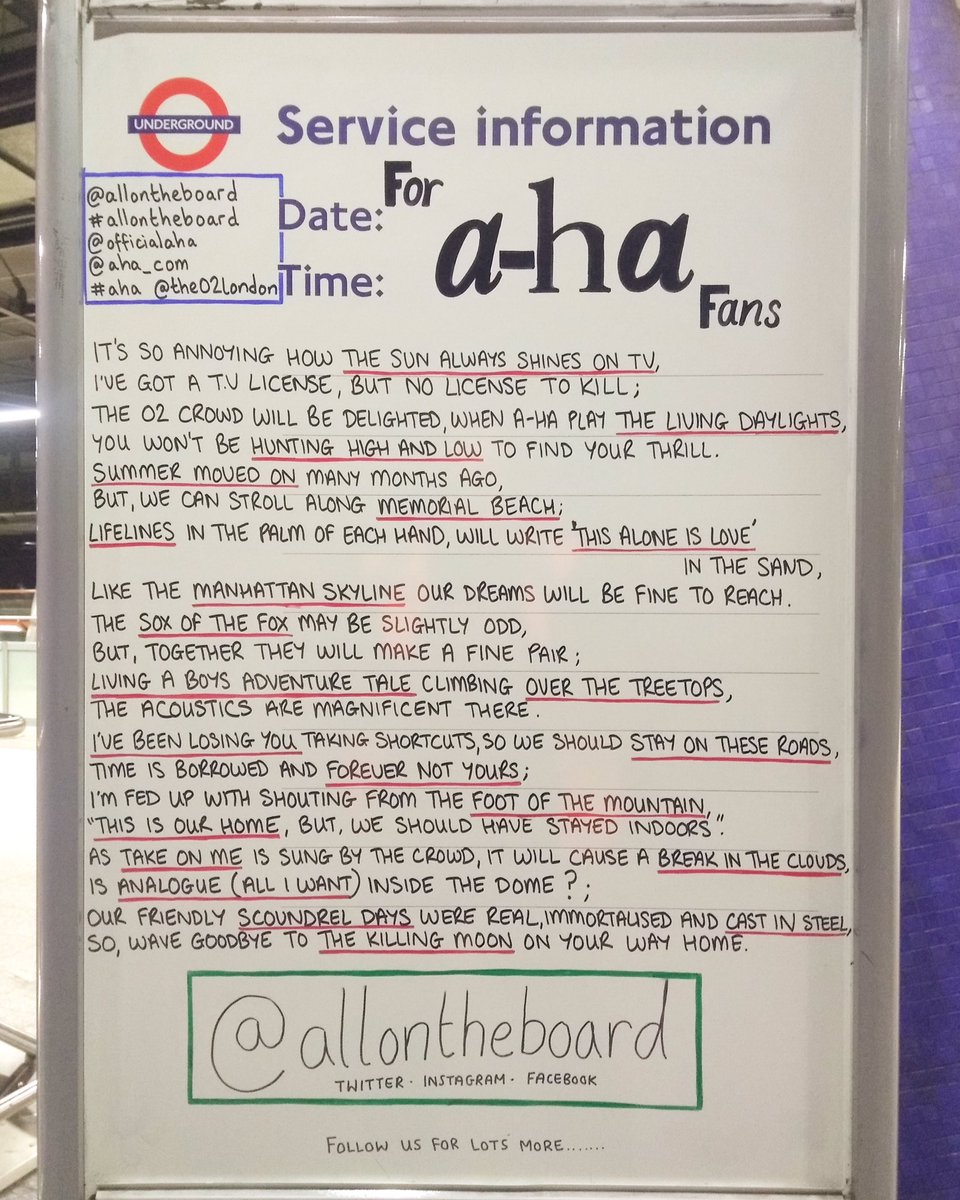 UNDERGROUND
Service information
@allontheboard
#allontheboard
@officialaha
@aha_com
#aha @theO2London
Date:
Time:
For
a-ha
Fans
IT'S SO ANNOYING HOW THE SUN ALWAYS SHINES ON TV,
I'VE GOT A T.V LICENSE, BUT NO LICENSE TO KILL;
THE O2 CROWD WILL BE DELIGHTED, WHEN A-HA PLAY THE LIVING DAYLIGHTS,
YOU WON'T BE HUNTING HIGH AND LOW TO FIND YOUR THRILL.
SUMMER MOVED ON MANY MONTHS AGO,
BUT, WE CAN STROLL ALONG MEMORIAL BEACH;
LIFELINES IN THE PALM OF EACH HAND, WILL WRITE 'THIS ALONE IS LOVE'
IN THE SAND,
LIKE THE MANHATTAN SKYLINE OUR DREAMS WILL BE FINE TO REACH.
THE SOX OF THE FOX MAY BE SLIGHTLY ODD,
BUT, TOGETHER THEY WILL MAKE A FINE PAIR;
LIVING A BOYS ADVENTURE TALE CLIMBING OVER THE TREETOPS,
THE ACOUSTICS ARE MAGNIFICENT THERE.
I'VE BEEN LOSING YOU TAKING SHORTCUTS, SO WE SHOULD STAY ON THESE ROADS,
TIME IS BORROWED AND FOREVER NOT YOURS;
I'M FED UP WITH SHOUTING FROM THE FOOT OF THE MOUNTAIN,
"THIS IS OUR HOME, BUT, WE SHOULD HAVE STAYED INDOORS".
AS TAKE ON ME IS SUNG BY THE CROWD, IT WILL CAUSE A BREAK IN THE CLOUDS,
IS ANALOGUE (ALL I WANT) INSIDE THE DOME?;
OUR FRIENDLY SCOUNDREL DAYS WERE REAL, IMMORTALISED AND CAST IN STEEL,
SO, WAVE GOODBYE TO THE KILLING MOON ON YOUR WAY HOME.
@allontheboard
TWITTER · INSTAGRAM · FACEBOOK
FOLLOW US FOR LOTS MORE.......